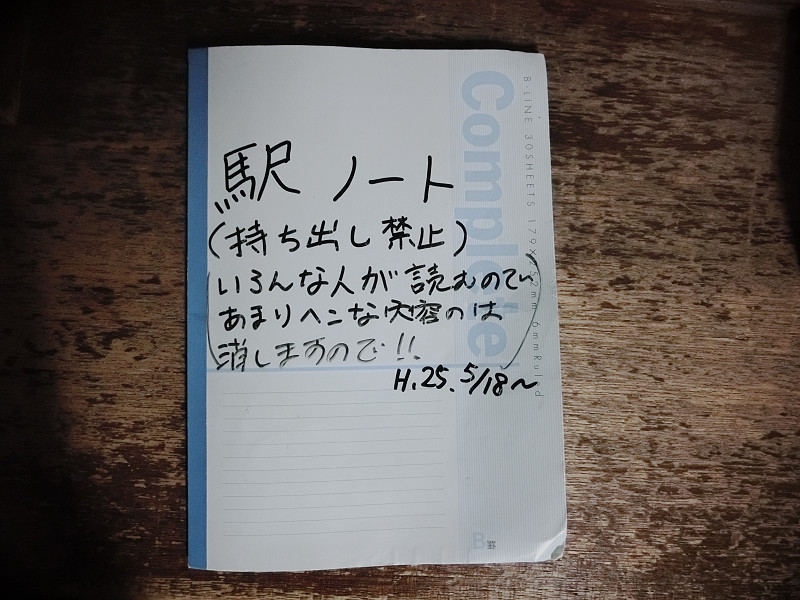 駅ノート
(持ち出し禁止)
(いろんな人が読むので
あまりヘンな内容のは
消しますので!!)
H.25.5/18〜
Complete
B-LINE 30SHEETS 179×252mm 6mmRuled
B罫